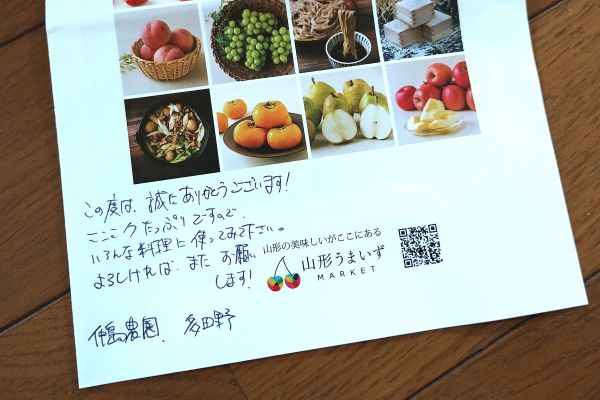 この度は、誠にありがとうございます!
ニンニクたっぷりですので、
いろんな料理に使ってみて下さい。
よろしければ、また お願い
します!
仲島農園、 多田野
山形の美味しいがここにある
山形うまいず
MARKET